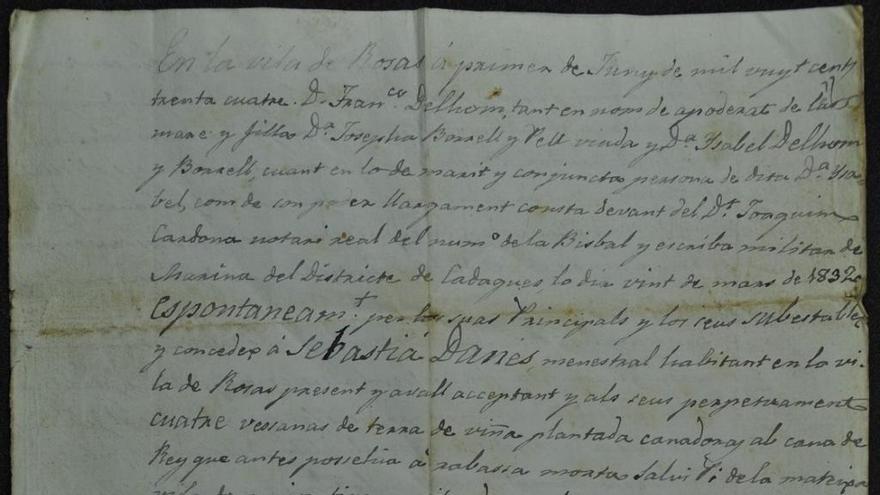 En la vila de Rosas á primer de Juny de mil vuyt cents
trenta cuatre. Dn. Franco. Delhom, tant en nom de apoderat de las
mare y filla Da. Josepha Borrell y Pell viuda y Da. Ysabel Delhom
y Borrell, cuant en lo de marit y conjuncta persona de dita Da. Ysa-
bel, com de con poder llargament consta devant del Dr. Joaquim
Cardona notari real del numo. de la Bisbal y escriba militar de
Marina del Districte de Cadaques, lo dia vint de mars de 1832
espontaneamt. per los suas Principals y los seus subestableix
y concedex á Sebastiá Danés, menestral habitant en la vi-
la de Rosas present y avall acceptant y als seus perpetuament
cuatre vessanas de terra de viña plantada canadora y ab cana de
Rey que antes possehia á rabassa morta Salvi Pi de la mateixa